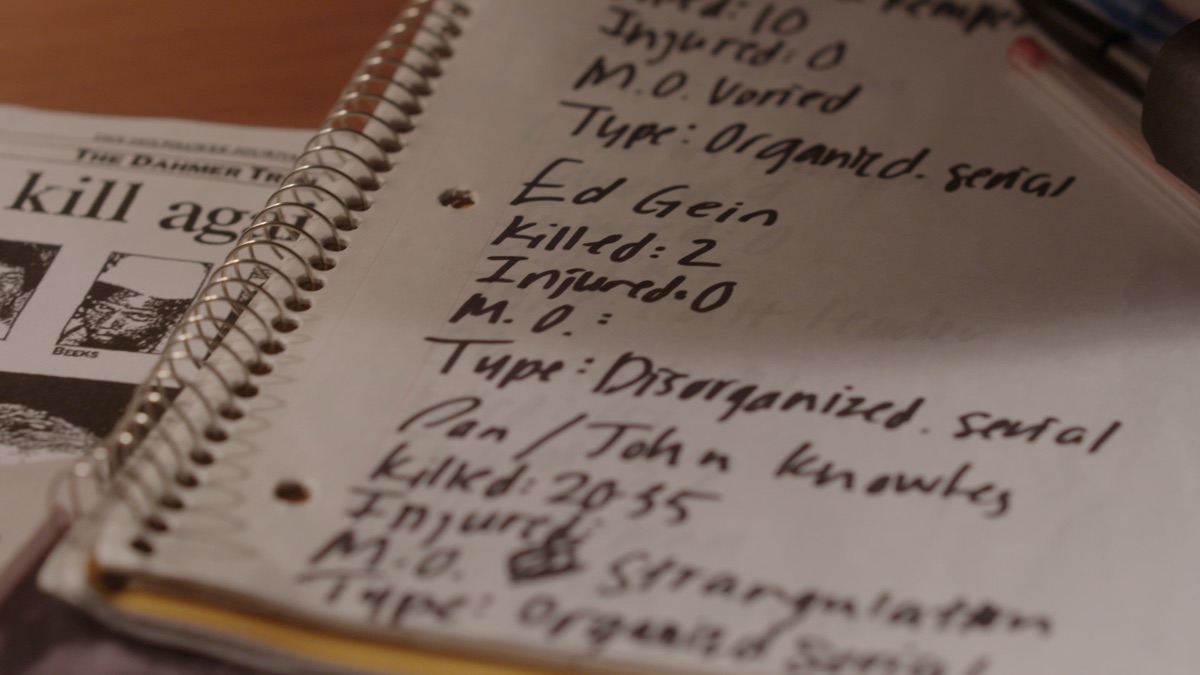 THE DAHMER TR
kill aga
BEEKS
Kemper
Killed: 10
Injured: 0
M.O. Varied
Type: Organizd. serial
Ed Gein
Killed: 2
Injured: 0
M.O.:
Type: Disorganized. serial
Pan / John Knowles
Killed: 20-35
Injured:
M.O. Strangulation
Type: Organizd Serial